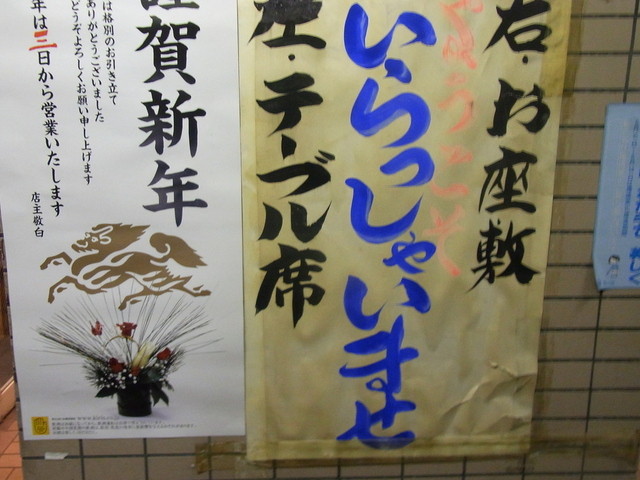 右・お座敷
ようこそ
いらっしゃいませ
・テーブル席
謹賀新年
は格別のお引き立て
ありがとうございました
どうぞよろしくお願い申し上げます
年は三日から営業いたします
店主敬白